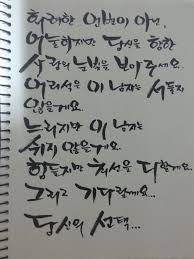 화려한 언변이 아닌,
어눌하지만 당신을 향한
사랑의 눈빛을 보아주세요..
어리석은 이 남자는 서둘지
않을게요..
느리지만 이 남자는
쉬지 않을게요..
힘들지만 최선을 다할게요..
그리고 기다릴게요..
당신의 선택...